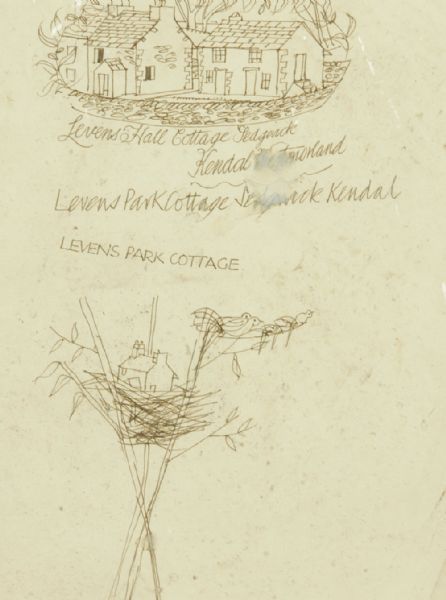 Levens Hall Cottage Sedgwick
Kendal Westmorland
Levens Park Cottage Sedgwick Kendal
LEVENS PARK COTTAGE